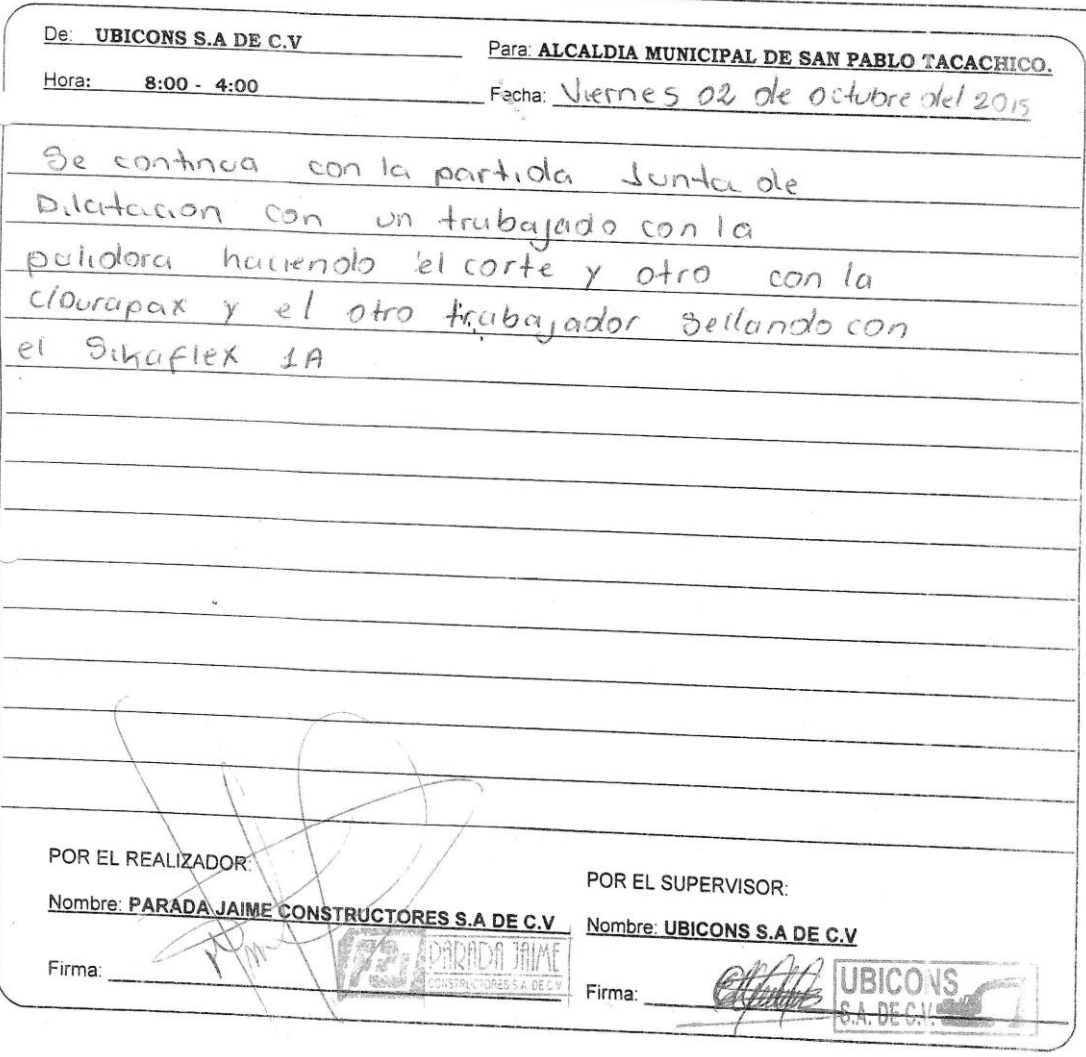 De: UBICONS S.A DE C.V
Para: ALCALDIA MUNICIPAL DE SAN PABLO TACACHICO.
Hora: 8:00 - 4:00
Fecha: Viernes 02 de octubre del 2015
Se continua con la partida Junta de
Dilatacion con un trabajado con la
pulidora haciendo el corte y otro con la
c/Durapax y el otro trabajador Sellando con
el Sikaflex 1A
POR EL REALIZADOR:
POR EL SUPERVISOR:
Nombre: PARADA JAIME CONSTRUCTORES S.A DE C.V
Nombre: UBICONS S.A DE C.V
Firma:
PARADA JAIME
CONSTRUCTORES S.A DE C.V
Firma:
UBICONS
S.A. DE C.V.